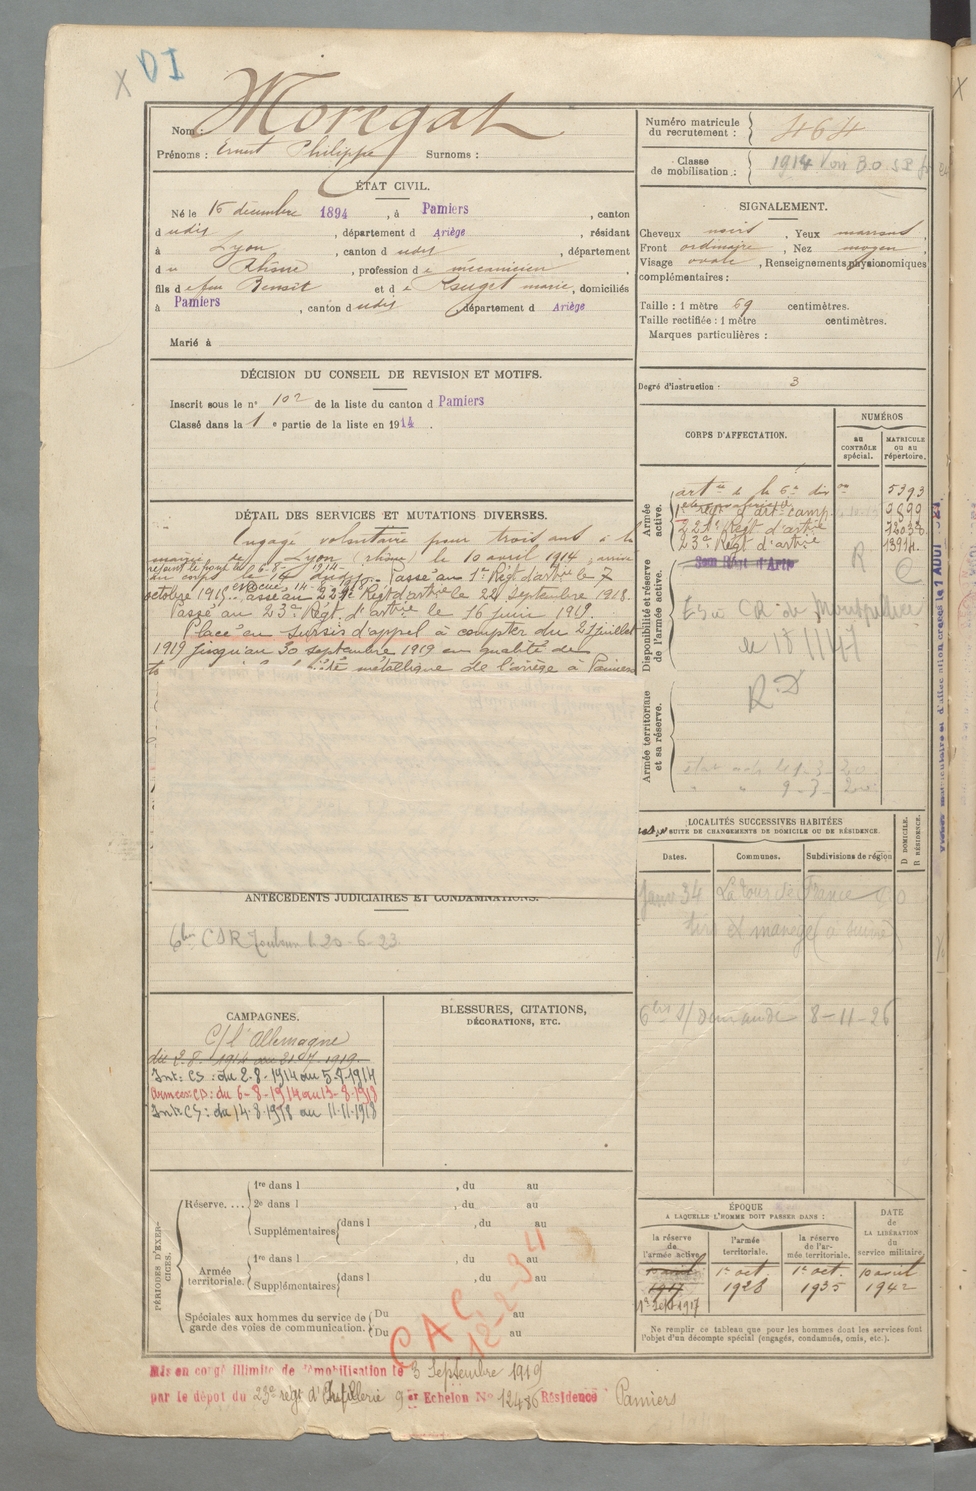 X DI
Nom : Moregat
Prénoms : Ernest Philippe Surnoms :
ÉTAT CIVIL.
Né le 15 décembre 1894, à Pamiers, canton
d udit, département d Ariège, résidant
à Lyon, canton d udit, département
d u Rhône, profession d e mécanicien,
fils d e feu Benoît et d e Rouget marie, domiciliés
à Pamiers, canton d udit, département d Ariège
Marié à
DÉCISION DU CONSEIL DE REVISION ET MOTIFS.
Inscrit sous le n° 102 de la liste du canton d Pamiers
Classé dans la 1 e partie de la liste en 1914.
DÉTAIL DES SERVICES ET MUTATIONS DIVERSES.
Engagé volontaire pour trois ans à la
mairie de Lyon (rhône) le 10 avril 1914, arrivé
au corps le 14 dudit. Passé au 1er Régt d'artrie le 7
octobre 1915. Passé au 221e Régt d'artrie le 22 septembre 1918.
Passé au 23e Régt d'artrie le 16 juin 1919.
Placé en sursis d'appel à compter du 21 juillet
1919 jusqu'au 30 septembre 1919 en qualité de
métallique de l'ariège à Pamiers
ANTÉCÉDENTS JUDICIAIRES ET CONDAMNATIONS.
6 bis CDR 20-6-23
CAMPAGNES.
C/ l'Allemagne
du 2.8.1914 au 21.7.1919.
Int: CS: du 2-8-1914 au 5-8-1914
Armées: CD: du 6-8-1914 au 13-8-1918
Int: CS: du 14.8.1918 au 11.11.1918
BLESSURES, CITATIONS,
DÉCORATIONS, ETC.
PÉRIODES D'EXERCICES.
Réserve.... 1re dans l , du au
2e dans l , du au
Supplémentaires dans l , du au
Armée territoriale. 1re dans l , du au
Supplémentaires dans l , du au
Spéciales aux hommes du service de Du au
garde des voies de communication. Du au
CAC 12-2-34
Mis en congé illimité de démobilisation le 3 Septembre 1919
par le dépôt du 23e régt d'Artillerie 9 Echelon N° 12486 Résidence Pamiers
Numéro matricule
du recrutement : 464
Classe
de mobilisation : 1914 Voir B.O.
SIGNALEMENT.
Cheveux noirs, Yeux marrons,
Front ordinaire, Nez moyen
Visage ovale, Renseignements physionomiques
complémentaires :
Taille : 1 mètre 69 centimètres.
Taille rectifiée : 1 mètre centimètres.
Marques particulières :
Degré d'instruction : 3
CORPS D'AFFECTATION.
NUMÉROS
au CONTRÔLE spécial.
MATRICULE ou au répertoire.
Armée active.
artie de la 6e don 5393
1er régt d'art camp. 9899
221e Régt d'artrie
23e Régt d'artrie
Disponibilité et réserve de l'armée active.
R C
CR de Montpellier
Armée territoriale et sa réserve.
R.D
LOCALITÉS SUCCESSIVES HABITÉES
PAR SUITE DE CHANGEMENTS DE DOMICILE OU DE RÉSIDENCE.
Dates. Communes. Subdivisions de région
D DOMICILE.
R RÉSIDENCE.
34 La tour de France
tirs et manège
6 bis s/ demande 8-11-26
ÉPOQUE
A LAQUELLE L'HOMME DOIT PASSER DANS :
la réserve de l'armée active.
l'armée territoriale.
la réserve de l'armée territoriale.
DATE de LA LIBÉRATION du service militaire.
10 avril 1er oct 1er oct. 10 avril
1917 1928 1935 1942
Ne remplir ce tableau que pour les hommes dont les services font
l'objet d'un décompte spécial (engagés, condamnés, omis, etc.).